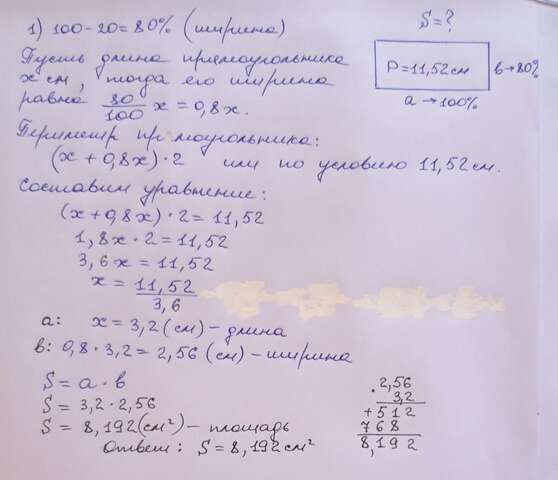 1) 100-20=80% (ширина)
S=?
Пусть длина прямоугольника
P=11,52см
в→80%
x см, тогда его ширина
a→100%
равна 80/100 x = 0,8x.
Периметр прямоугольника:
(x+0,8x)·2 или по условию 11,52см.
Составим уравнение:
(x+0,8x)·2=11,52
1,8x·2=11,52
3,6x=11,52
x = 11,52/3,6
a: x=3,2(см)-длина
в: 0,8·3,2=2,56(см)-ширина
S=a·в
S=3,2·2,56
S=8,192(см²)-площадь
Ответ: S=8,192см²
·2,56
3,2
+512
768
8,192